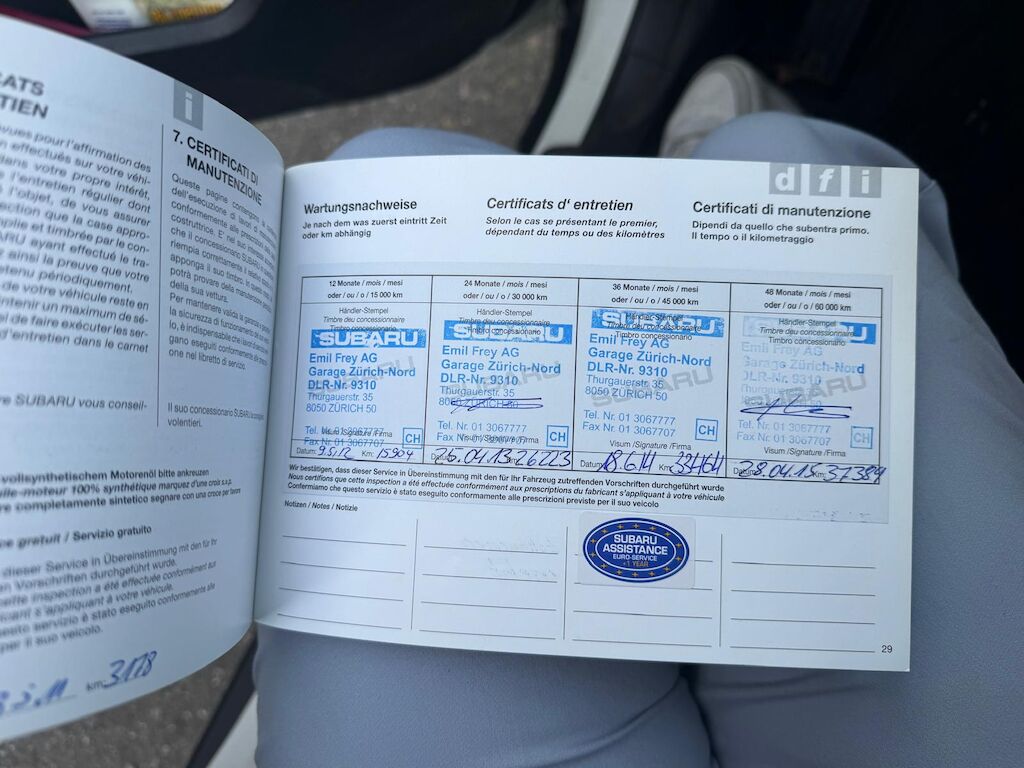 CATS
TIEN
vues pour l'affirmation des
effectués sur votre véhi-
dans votre propre intérêt,
l'entretien régulier dont
l'objet, de vous assurer
ection que la case appro-
plie et timbrée par le con-
ARU ayant effectué le tra-
z ainsi la preuve que votre
etenu périodiquement.
de votre véhicule reste en
ntenir un maximum de sé-
el de faire exécuter les ser-
d'entretien dans le carnet
re SUBARU vous conseil-
i
7. CERTIFICATI DI
MANUTENZIONE
Queste pagine contengono
dell'esecuzione di lavori di
conformemente alle prescrizioni della
costruttrice. E' nel suo
che il concessionario SUBARU
riempia correttamente il
apponga il suo timbro. In questo
potrà provare della manutenzione
della sua vettura.
Per mantenere valida la garanzia e
la sicurezza di funzionamento
è indispensabile che i lavori
gano eseguiti conformemente alle
one nel libretto di servizio.
Il suo concessionario SUBARU la consiglia
volentieri.
vollsynthetischem Motorenöl bitte ankreuzen
ile-moteur 100% synthétique marquez d'une croix s.v.p.
re completamente sintetico segnare con una croce per favore
ce gratuit / Servizio gratuito
dieser Service in Übereinstimmung mit den für Ihr
n Vorschriften durchgeführt wurde.
cette inspection a été effectuée conformément aux
uesto servizio è stato eseguito conformemente alle
per il suo veicolo.
km: 3178
d f i
Wartungsnachweise
Je nach dem was zuerst eintritt Zeit
oder km abhängig
Certificats d' entretien
Selon le cas se présentant le premier,
dépendant du temps ou des kilomètres
Certificati di manutenzione
Dipendi da quello che subentra primo.
Il tempo o il kilometraggio
12 Monate / mois / mesi
oder / ou / o / 15 000 km
Händler-Stempel
Timbre du concessionnaire
Timbro concessionario
SUBARU
Emil Frey AG
Garage Zürich-Nord
DLR-Nr. 9310
Thurgauerstr. 35
8050 ZÜRICH 50
Tel. Nr. 01 3067777
Fax Nr. 01 3067707
CH
Visum / Signature / Firma
Datum: 9.5.12 Km: 15904
24 Monate / mois / mesi
oder / ou / o / 30 000 km
Händler-Stempel
Timbre du concessionnaire
Timbro concessionario
SUBARU
Emil Frey AG
Garage Zürich-Nord
DLR-Nr. 9310
Thurgauerstr. 35
8050 ZÜRICH 50
Tel. Nr. 01 3067777
Fax Nr. 01 3067707
CH
Visum / Signature / Firma
Datum: 16.04.13 Km: 26223
36 Monate / mois / mesi
oder / ou / o / 45 000 km
Händler-Stempel
Timbre du concessionnaire
Timbro concessionario
SUBARU
Emil Frey AG
Garage Zürich-Nord
DLR-Nr. 9310
Thurgauerstr. 35
8050 ZÜRICH 50
Tel. Nr. 01 3067777
Fax Nr. 01 3067707
CH
Visum / Signature / Firma
Datum: 18.6.14 Km:
48 Monate / mois / mesi
oder / ou / o / 60 000 km
Händler-Stempel
Timbre du concessionnaire
Timbro concessionario
SUBARU
Emil Frey AG
Garage Zürich-Nord
DLR-Nr. 9310
Thurgauerstr. 35
8050 ZÜRICH 50
Tel. Nr. 01 3067777
Fax Nr. 01 3067707
CH
Datum: 28.04.15 Km: 37389
Wir bestätigen, dass dieser Service in Übereinstimmung mit den für Ihr Fahrzeug zutreffenden Vorschriften durchgeführt wurde
Nous certifions que cette inspection a été effectuée conformément aux prescriptions du fabricant s'appliquant à votre véhicule
Confermiamo che questo servizio è stato eseguito conformemente alle prescrizioni previste per il suo veicolo
Notizen / Notes / Notizie
SUBARU
ASSISTANCE
EURO-SERVICE
+1 YEAR
29